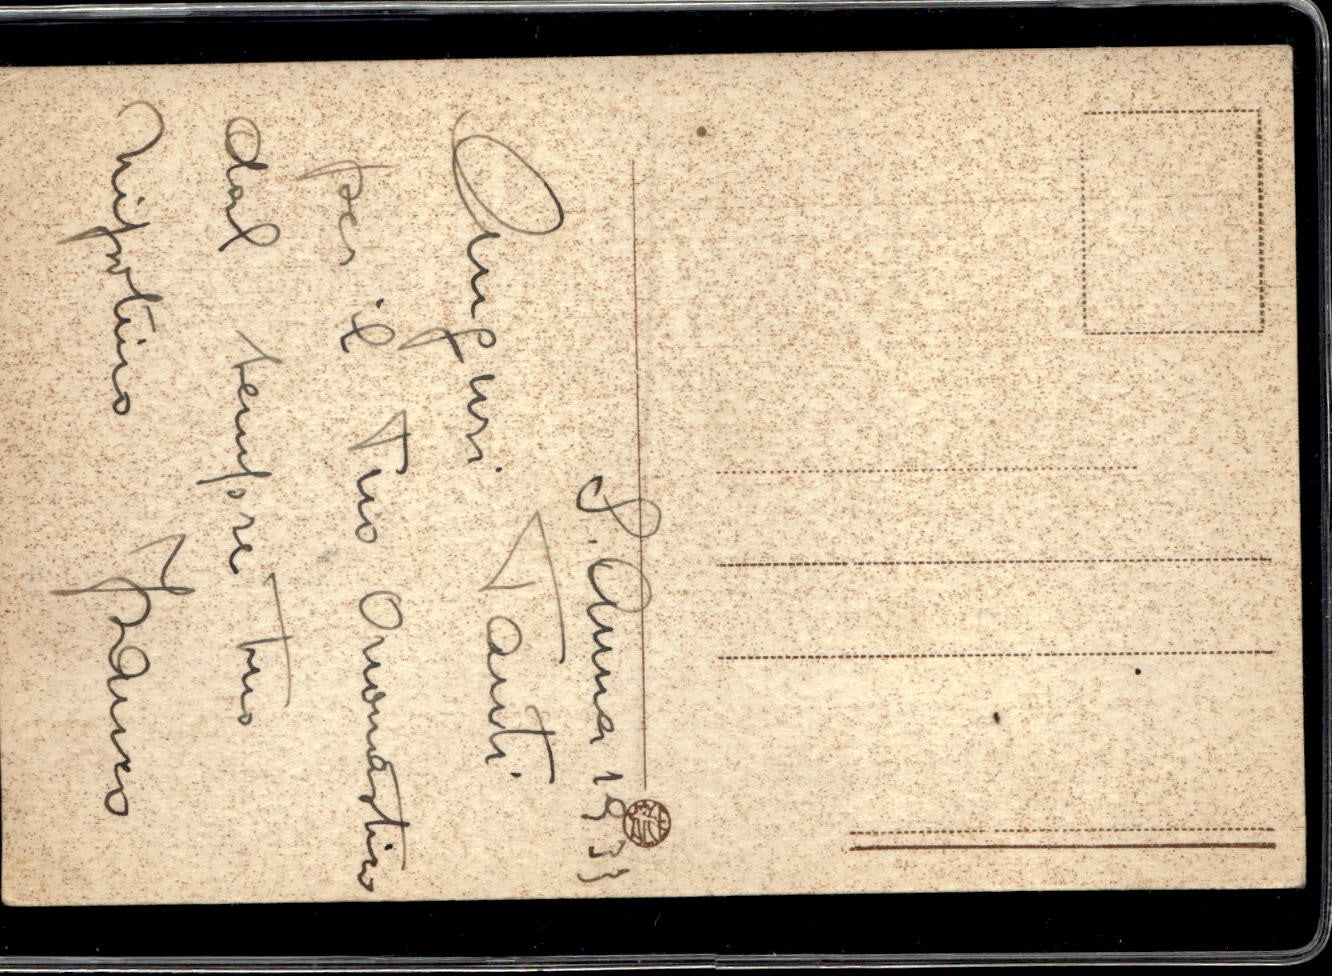 S. Anna 1933
Auguri Tanti
per il Tuo Onomastico
dal sempre Tuo
Nipotino Franco